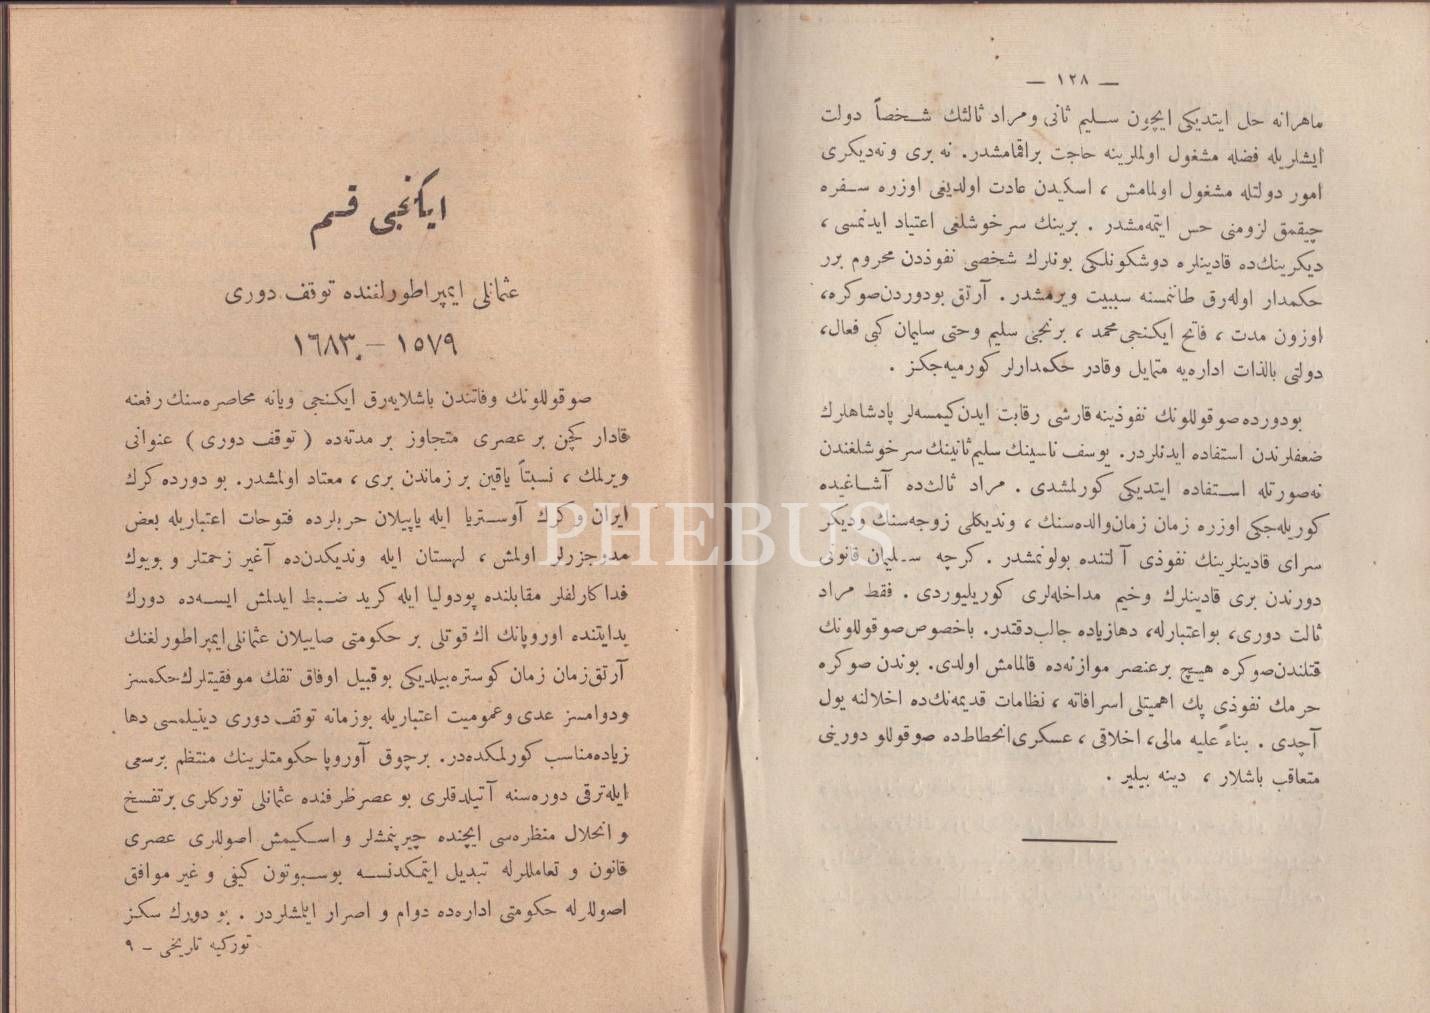 — ١٢٨ —
ماهرانه حل ایتدیکی ایچون سلیم ثانی ومراد ثالثك شخصاً دولت
ایشلریله فضله مشغول اولملرینه حاجت براقمامشدر. نه بری ونه‌دیکری
امور دولتله مشغول اولمامش ، اسکیدن عادت اولدیغی اوزره سفره
چیقمق لزومنی حس ایتمه‌مشدر . برینك سرخوشلغی اعتیاد ایدنمسی ،
دیکرینك‌ده قادینلره دوشکونلکی بونلرك شخصی نفوذدن محروم برر
حکمدار اوله‌رق طانمسنه سببیت ویرمشدر . آرتق بودوردن‌صوکره،
اوزون مدت ، فاتح ایکنجی محمد ، برنجی سلیم وحتی سلیمان کبی فعال،
دولتی بالذات اداره‌یه متمایل وقادر حکمدارلر کورمیه‌جکز .
بودورده صوقوللونك نفوذینه قارشی رقابت ایدن کیمسه‌لر پادشاهلرك
ضعفلرندن استفاده ایدنلردر. یوسف ناسینك سلیم‌ثانینك سرخوشلغندن
نه‌صورتله استفاده ایتدیکی کورلمشدی . مراد ثالث‌ده آشاغیده
کوریله‌جکی اوزره زمان زمان‌والده‌سنك ، وندیکلی زوجه‌سنك ودیکر
سرای قادینلرینك نفوذی آلتنده بولونمشدر . کرچه سلیمان قانونی
دورندن بری قادینلرك وخیم مداخله‌لری کوریلیوردی . فقط مراد
ثالث دوری، بواعتبارله، دهازیاده جالب‌دقتدر. باخصوص‌صوقوللونك
قتلندن‌صوکره هیچ برعنصر موازنه‌ده قالمامش اولدی. بوندن صوکره
حرمك نفوذی پك اهمیتلی اسرافاته ، نظامات قدیمه‌نك‌ده اخلالنه یول
آچدی . بناءً علیه مالی، اخلاقی ، عسکری‌انحطاط‌ده صوقوللو دورینی
متعاقب باشلار ، دینه بیلیر .
ایکنجی قسم
عثمانلی ایمپراطورلغنده توقف دوری
١٥٧٩ – ١٦٨٣
صوقوللونك وفاتندن باشلایه‌رق ایکنجی ویانه محاصره‌سنك رفعنه
قادار کچن بر عصری متجاوز بر مدته‌ده ( توقف دوری ) عنوانی
ویرلمك ، نسبتاً یاقین بر زماندن بری ، معتاد اولمشدر. بو دورده کرك
ایران و کرك آوستریا ایله یاپیلان حربلرده فتوحات اعتباریله بعض
مدوجزرلر اولمش ، لهستان ایله وندیکدن‌ده آغیر زحمتلر و بویوك
فداکارلقلر مقابلنده پودولیا ایله کرید ضبط ایدلمش ایسه‌ده دورك
بدایتنده اوروپانك اك قوتلی بر حکومتی صاییلان عثمانلی‌ایمپراطورلغنك
آرتق‌زمان زمان کوستره‌بیلدیکی بو قبیل اوفاق تفك موفقیتلرك‌حکمسز
ودوامسز عدی وعمومیت اعتباریله بوزمانه توقف دوری دینیلمسی دها
زیاده‌مناسب کورلمکده‌در. برچوق آوروپا حکومتلرینك منتظم برسعی
ایله‌ترقی دوره‌سنه آتیلدقلری بو عصرظرفنده عثمانلی تورکلری برتفسخ
و انحلال منظره‌سی ایچنده چیرپنمشلر و اسکیمش اصوللری عصری
قانون و تعاملرله تبدیل ایتمکدنسه بوسبوتون کیفی و غیر موافق
اصوللرله حکومتی اداره‌ده دوام و اصرار ایلمشلردر . بو دورك سکز
تورکیه تاریخی – ٩
PHEBUS